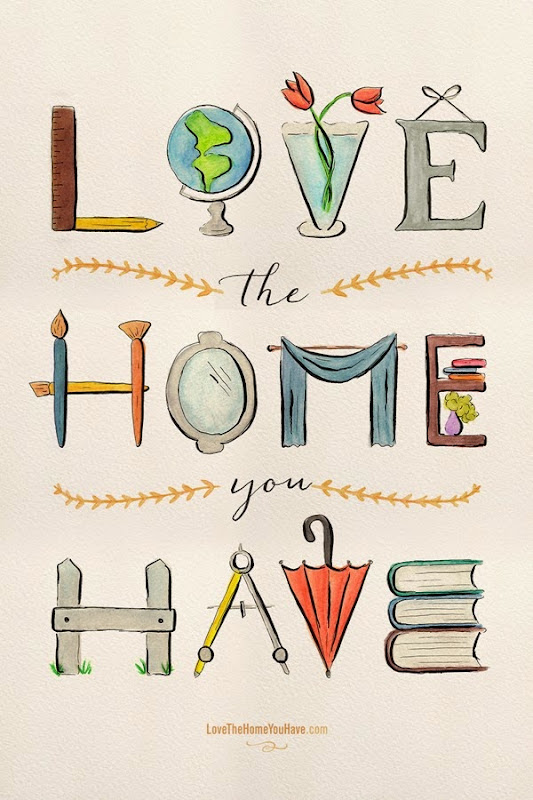 LOVE
the
HOME
you
HAVE
LoveTheHomeYouHave.com